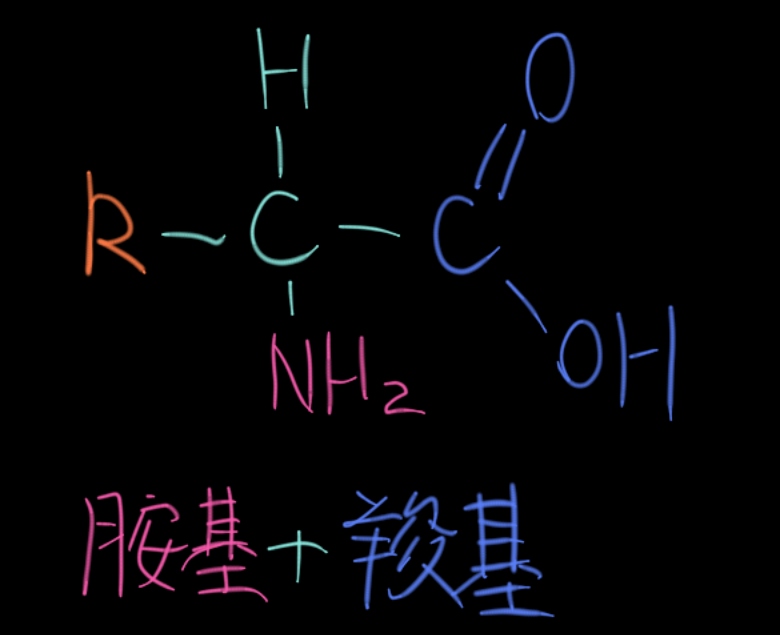 H
O
R C C
NH2
OH
胺基+羧基